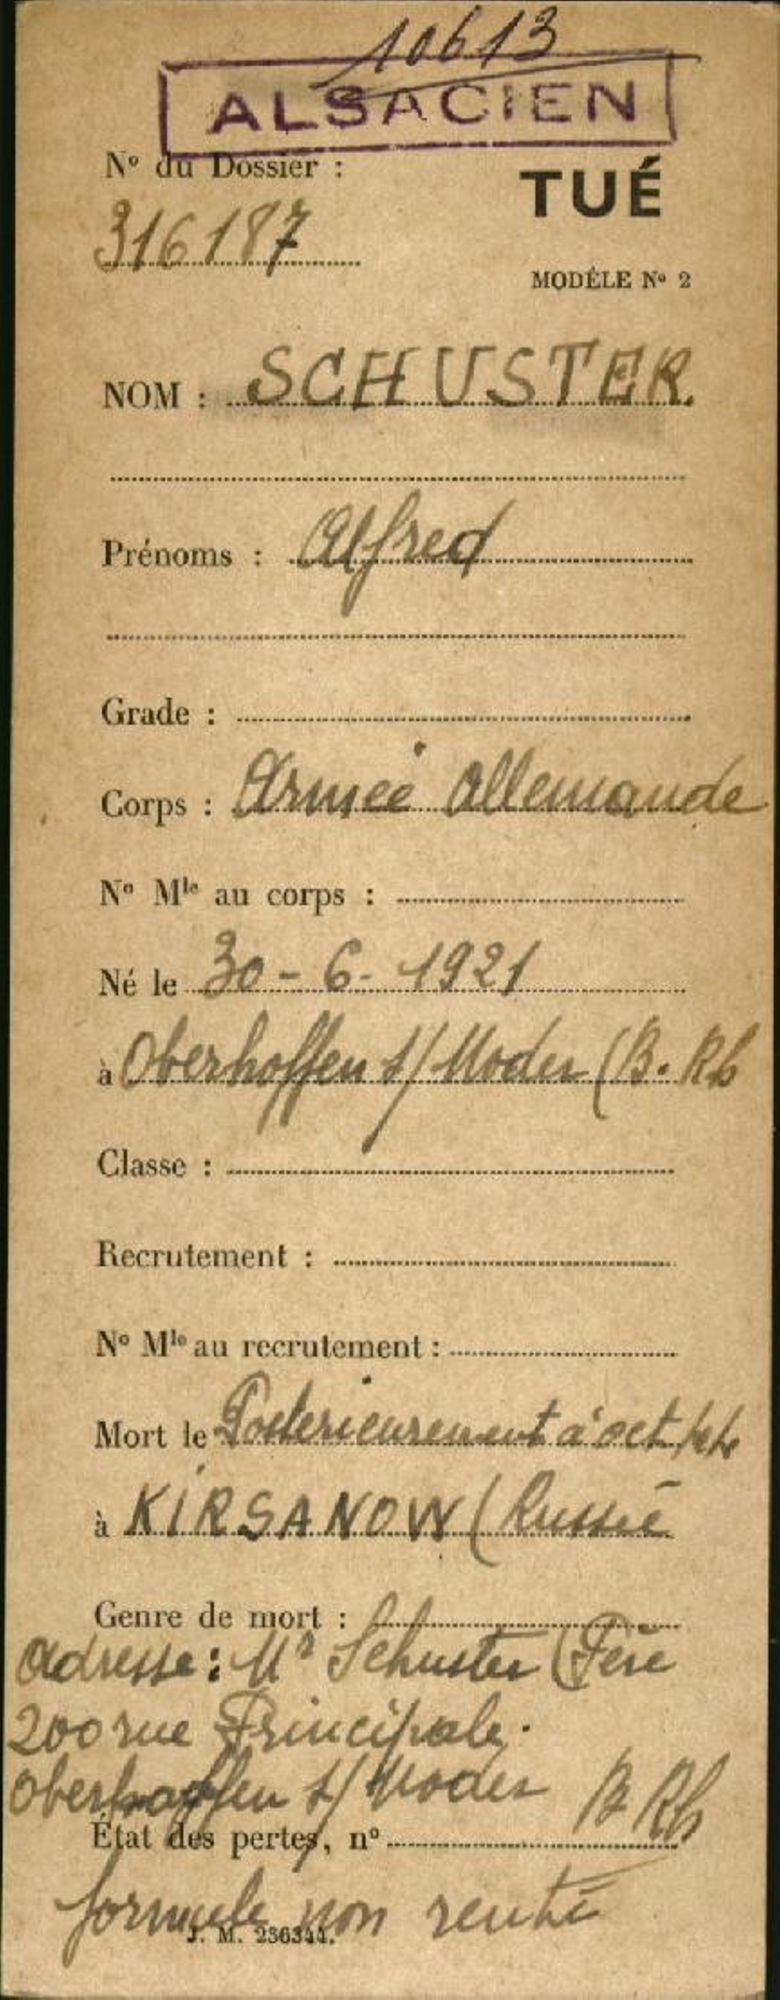 10613
ALSACIEN
N° du Dossier :
TUÉ
316187
MODÈLE N° 2
NOM : SCHUSTER.
Prénoms : Alfred
Grade :
Corps : Armée Allemande
N° Mle au corps :
Né le 30 - 6 - 1921
à Oberhoffen s/ Moder (B. Rh
Classe :
Recrutement :
N° Mle au recrutement :
Mort le Posterieurement à oct 44
à KIRSANOW (Russie
Genre de mort :
adresse : Mr Schuster (Père
200 rue Principale.
Oberhoffen s/ Moder B Rh
État des pertes, n°
formule non
J. M. 236344.